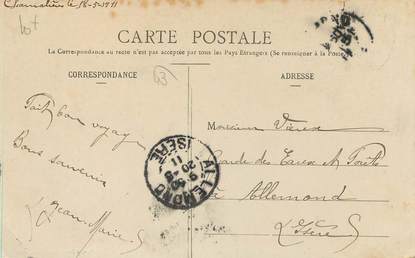 Chamalières le 18-5-1911
lot
CARTE POSTALE
La Correspondance au recto n'est pas acceptée par tous les Pays Etrangers (Se renseigner à la Poste)
CORRESPONDANCE
63
ADRESSE
Fait bon voyage
Bons souvenirs
Jean Marie
Monsieur
Garde des Eaux et Forêts
à Allemond
Isère
ALLEMOND
20 -5
11
ISERE